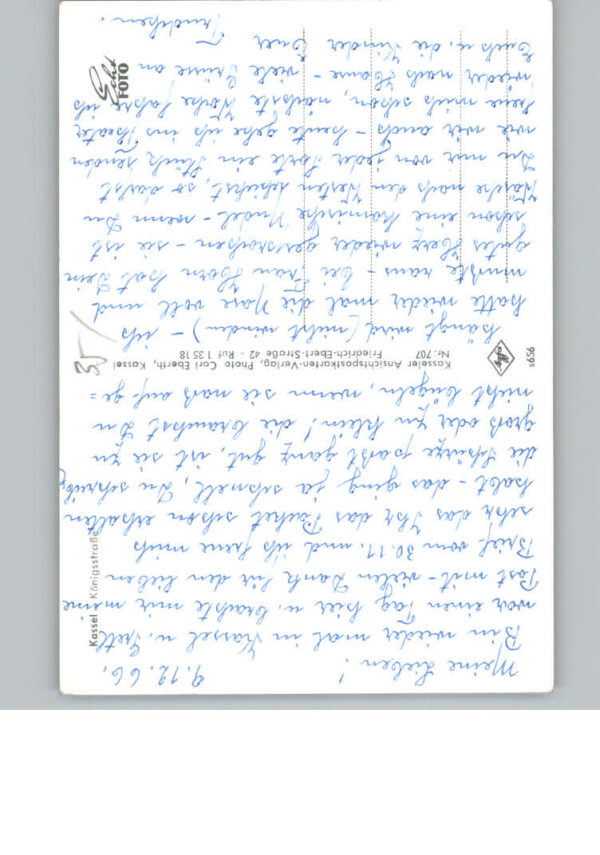 9.12.66.
Meine Lieben!
Bin wieder mal in Kassel u. Gretl
war einen Tag hier u. brachte mir meine
Post mit - vielen Dank für den lieben
Brief vom 30.11. und ich freue mich
sehr, das Ihr das Packet schon erhalten
habt - das ging ja schnell, Du schreibst
die Schürze paßt ganz gut, ist sie zu
groß oder zu klein! die brauchst Du
nicht bügeln, wenn sie nass auf-ge=
hängt wird (nicht winden) - ich
hatte wieder mal die Nase voll und
musste raus - bei Frau Horn hat Dein
gutes Herz wieder gesprochen - sie ist
schon eine komische Nudel - wenn Du
Wäsche nach den Westen schickst, so darfst
Du nur von jeder Sorte ein Stück senden
wie wir auch - heute gehe ich ins Theater
freu mich schon, nächste Woche fahre ich
wieder nach Hause - viele Grüsse an
Euch u. die Kinder Euer
Trudchen.
35
Kassel Königsstraße
Kasseler Ansichtspostkarten-Verlag, Photo Carl Eberth, Kassel
Nr. 707 Friedrich-Ebert-Straße 42 - Ruf 1 35 18
Echt
FOTO
s656